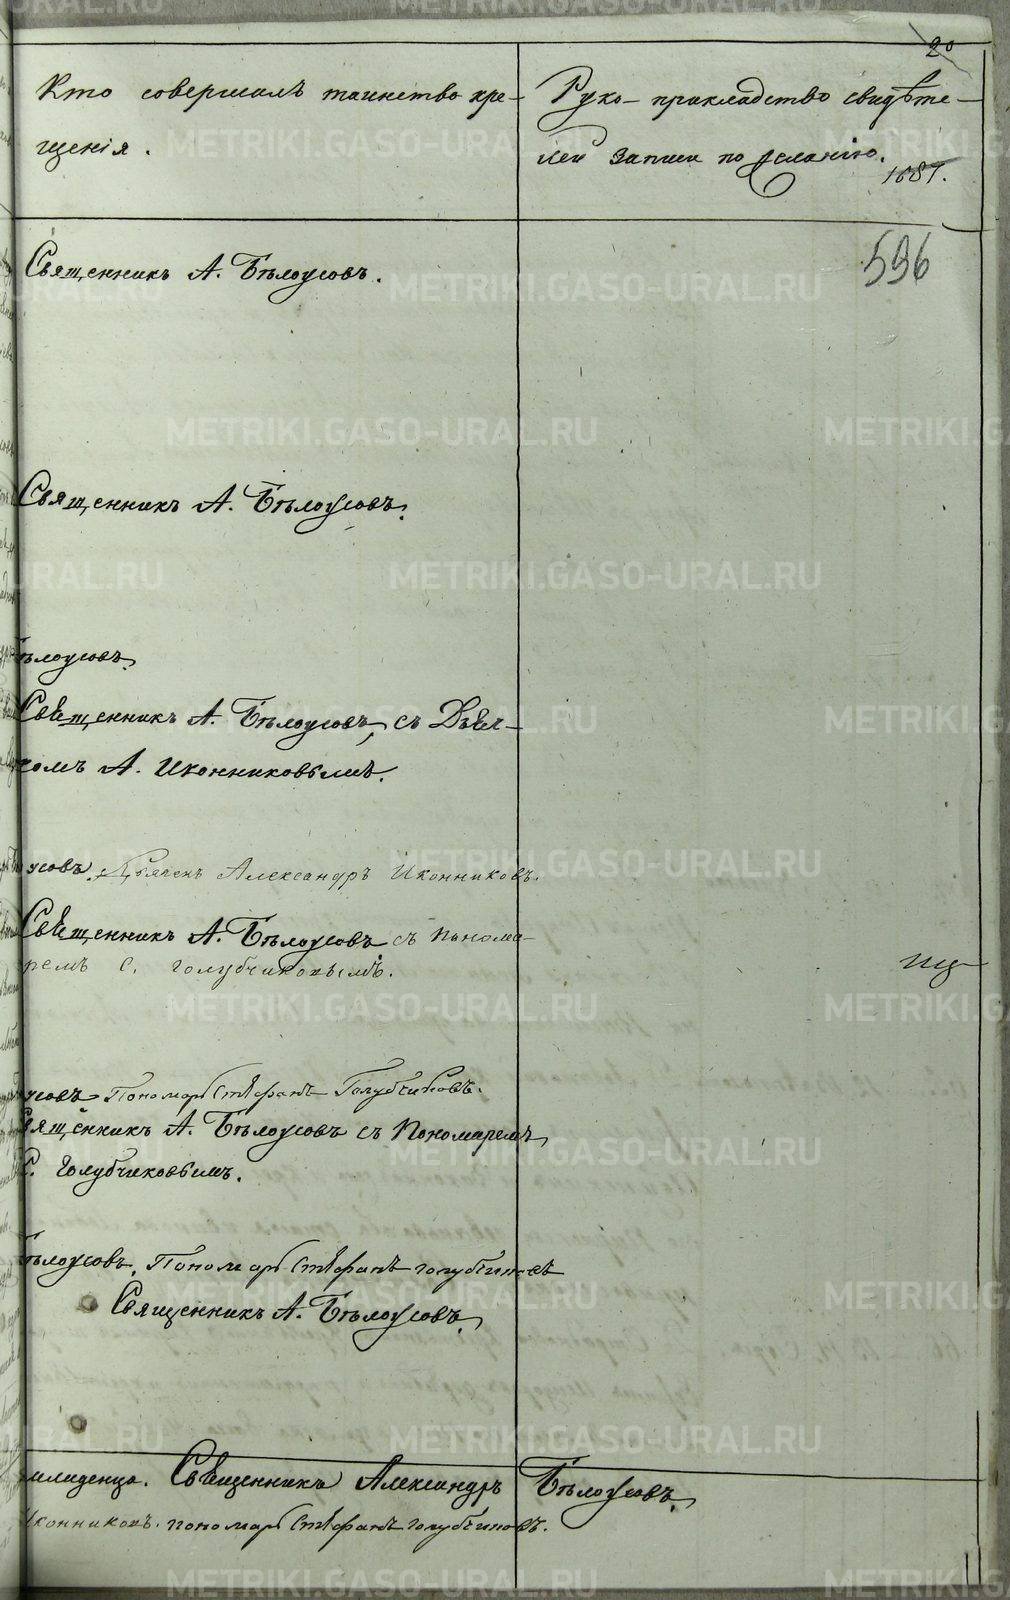 20
Кто совершалъ таинство кре-
щенія.
Руко-прикладство свидѣте-
лей записи по желанію.
1687.
596
Священникъ А. Бѣлоусовъ.
Священникъ А. Бѣлоусовъ.
ѣлоусовъ.
Священникъ А. Бѣлоусовъ, съ Дьяч-
комъ А. Иконниковымъ.
усовъ. Дьячекъ Александръ Иконниковъ.
Священникъ А. Бѣлоусовъ съ понома-
ремъ С. Голубчиковымъ.
усовъ Пономарь Стефанъ Голубчиковъ.
вященникъ А. Бѣлоусовъ съ Пономаремъ
С. Голубчиковымъ.
ѣлоусовъ. Пономарь Стефанъ Голубчиковъ
Священникъ А. Бѣлоусовъ.
младенца. Священникъ Александръ Бѣлоусовъ.
Иконниковъ. пономарь Стефанъ Голубчиковъ.
METRIKI.GASO-URAL.RU